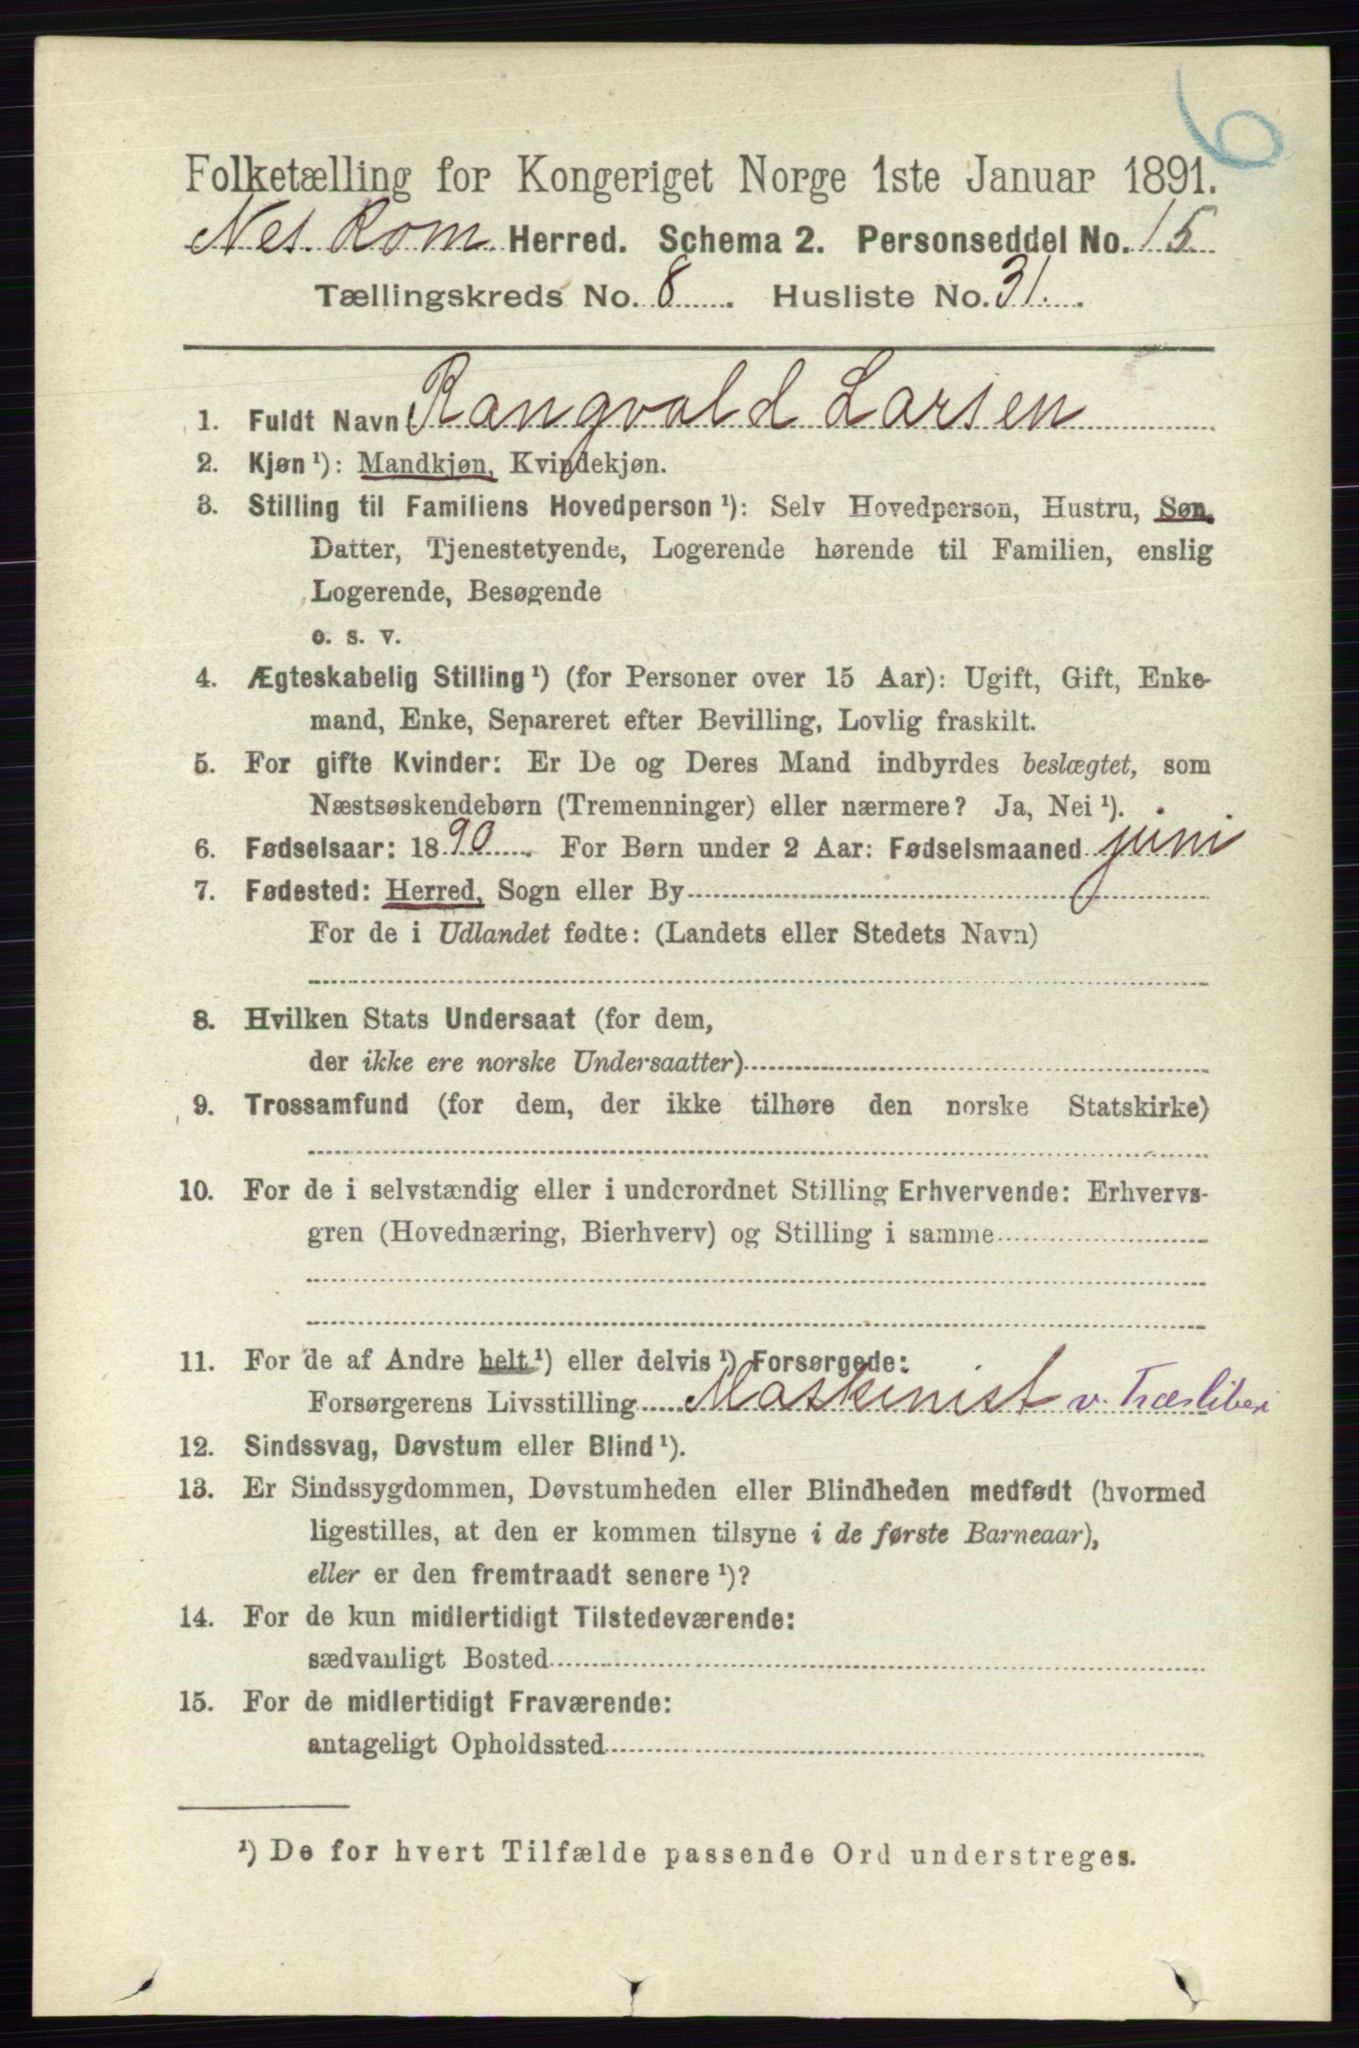 6
Folketælling for Kongeriget Norge 1ste Januar 1891.
Nes Rom. Herred. Schema 2. Personseddel No. 15
Tællingskreds No. 8 . Husliste No. 31.
1. Fuldt Navn Rangvald Larsen
2. Kjøn ¹): Mandkjøn, Kvindekjøn.
3. Stilling til Familiens Hovedperson ¹): Selv Hovedperson, Hustru, Søn,
Datter, Tjenestetyende, Logerende hørende til Familien, enslig
Logerende, Besøgende
o. s. v.
4. Ægteskabelig Stilling ¹) (for Personer over 15 Aar): Ugift, Gift, Enke-
mand, Enke, Separeret efter Bevilling, Lovlig fraskilt.
5. For gifte Kvinder: Er De og Deres Mand indbyrdes beslægtet, som
Næstsøskendebørn (Tremenninger) eller nærmere? Ja, Nei ¹).
6. Fødselsaar: 1890 . For Børn under 2 Aar: Fødselsmaaned juni
7. Fødested: Herred, Sogn eller By
For de i Udlandet fødte: (Landets eller Stedets Navn)
8. Hvilken Stats Undersaat (for dem,
der ikke ere norske Undersaatter)
9. Trossamfund (for dem, der ikke tilhøre den norske Statskirke)
10. For de i selvstændig eller i underordnet Stilling Erhvervende: Erhvervs-
gren (Hovednæring, Bierhverv) og Stilling i samme
11. For de af Andre helt ¹) eller delvis ¹) Forsørgede:
Forsørgerens Livsstilling Maskinist v. Træsliberi
12. Sindssvag, Døvstum eller Blind ¹).
13. Er Sindssygdommen, Døvstumheden eller Blindheden medfødt (hvormed
ligestilles, at den er kommen tilsyne i de første Barneaar),
eller er den fremtraadt senere ¹)?
14. For de kun midlertidigt Tilstedeværende:
sædvanligt Bosted
15. For de midlertidigt Fraværende:
antageligt Opholdssted
¹) De for hvert Tilfælde passende Ord understreges.